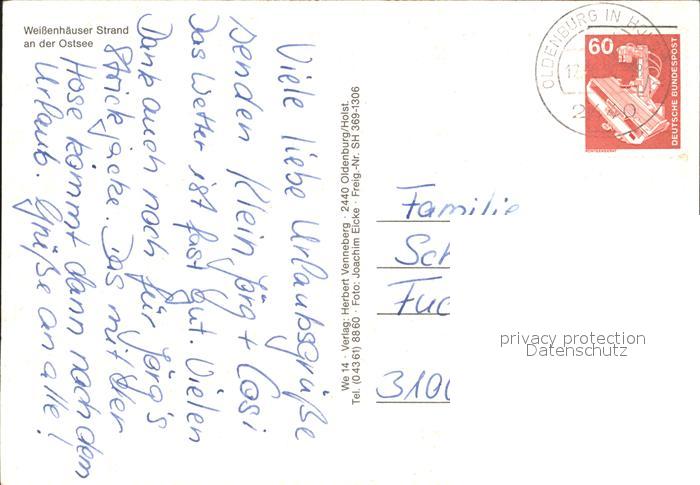 Weißenhäuser Strand
an der Ostsee
Viele liebe Urlaubsgrüße
senden Klein Jörg + Cosi
Das Wetter ist fast gut. Vielen
Dank auch noch für Jörg's
Strickjacke. Das mit der
Hose kommt dann nach dem
Urlaub. Grüße an alle!
We 14 · Verlag: Herbert Venneberg · 2440 Oldenburg/Holst.
Tel. (0 43 61) 8860 · Foto: Joachim Eicke · Freig.-Nr. SH 369-1306
OLDENBURG IN
60
DEUTSCHE BUNDESPOST
Familie
Sch
Fuc
310
privacy protection
Datenschutz